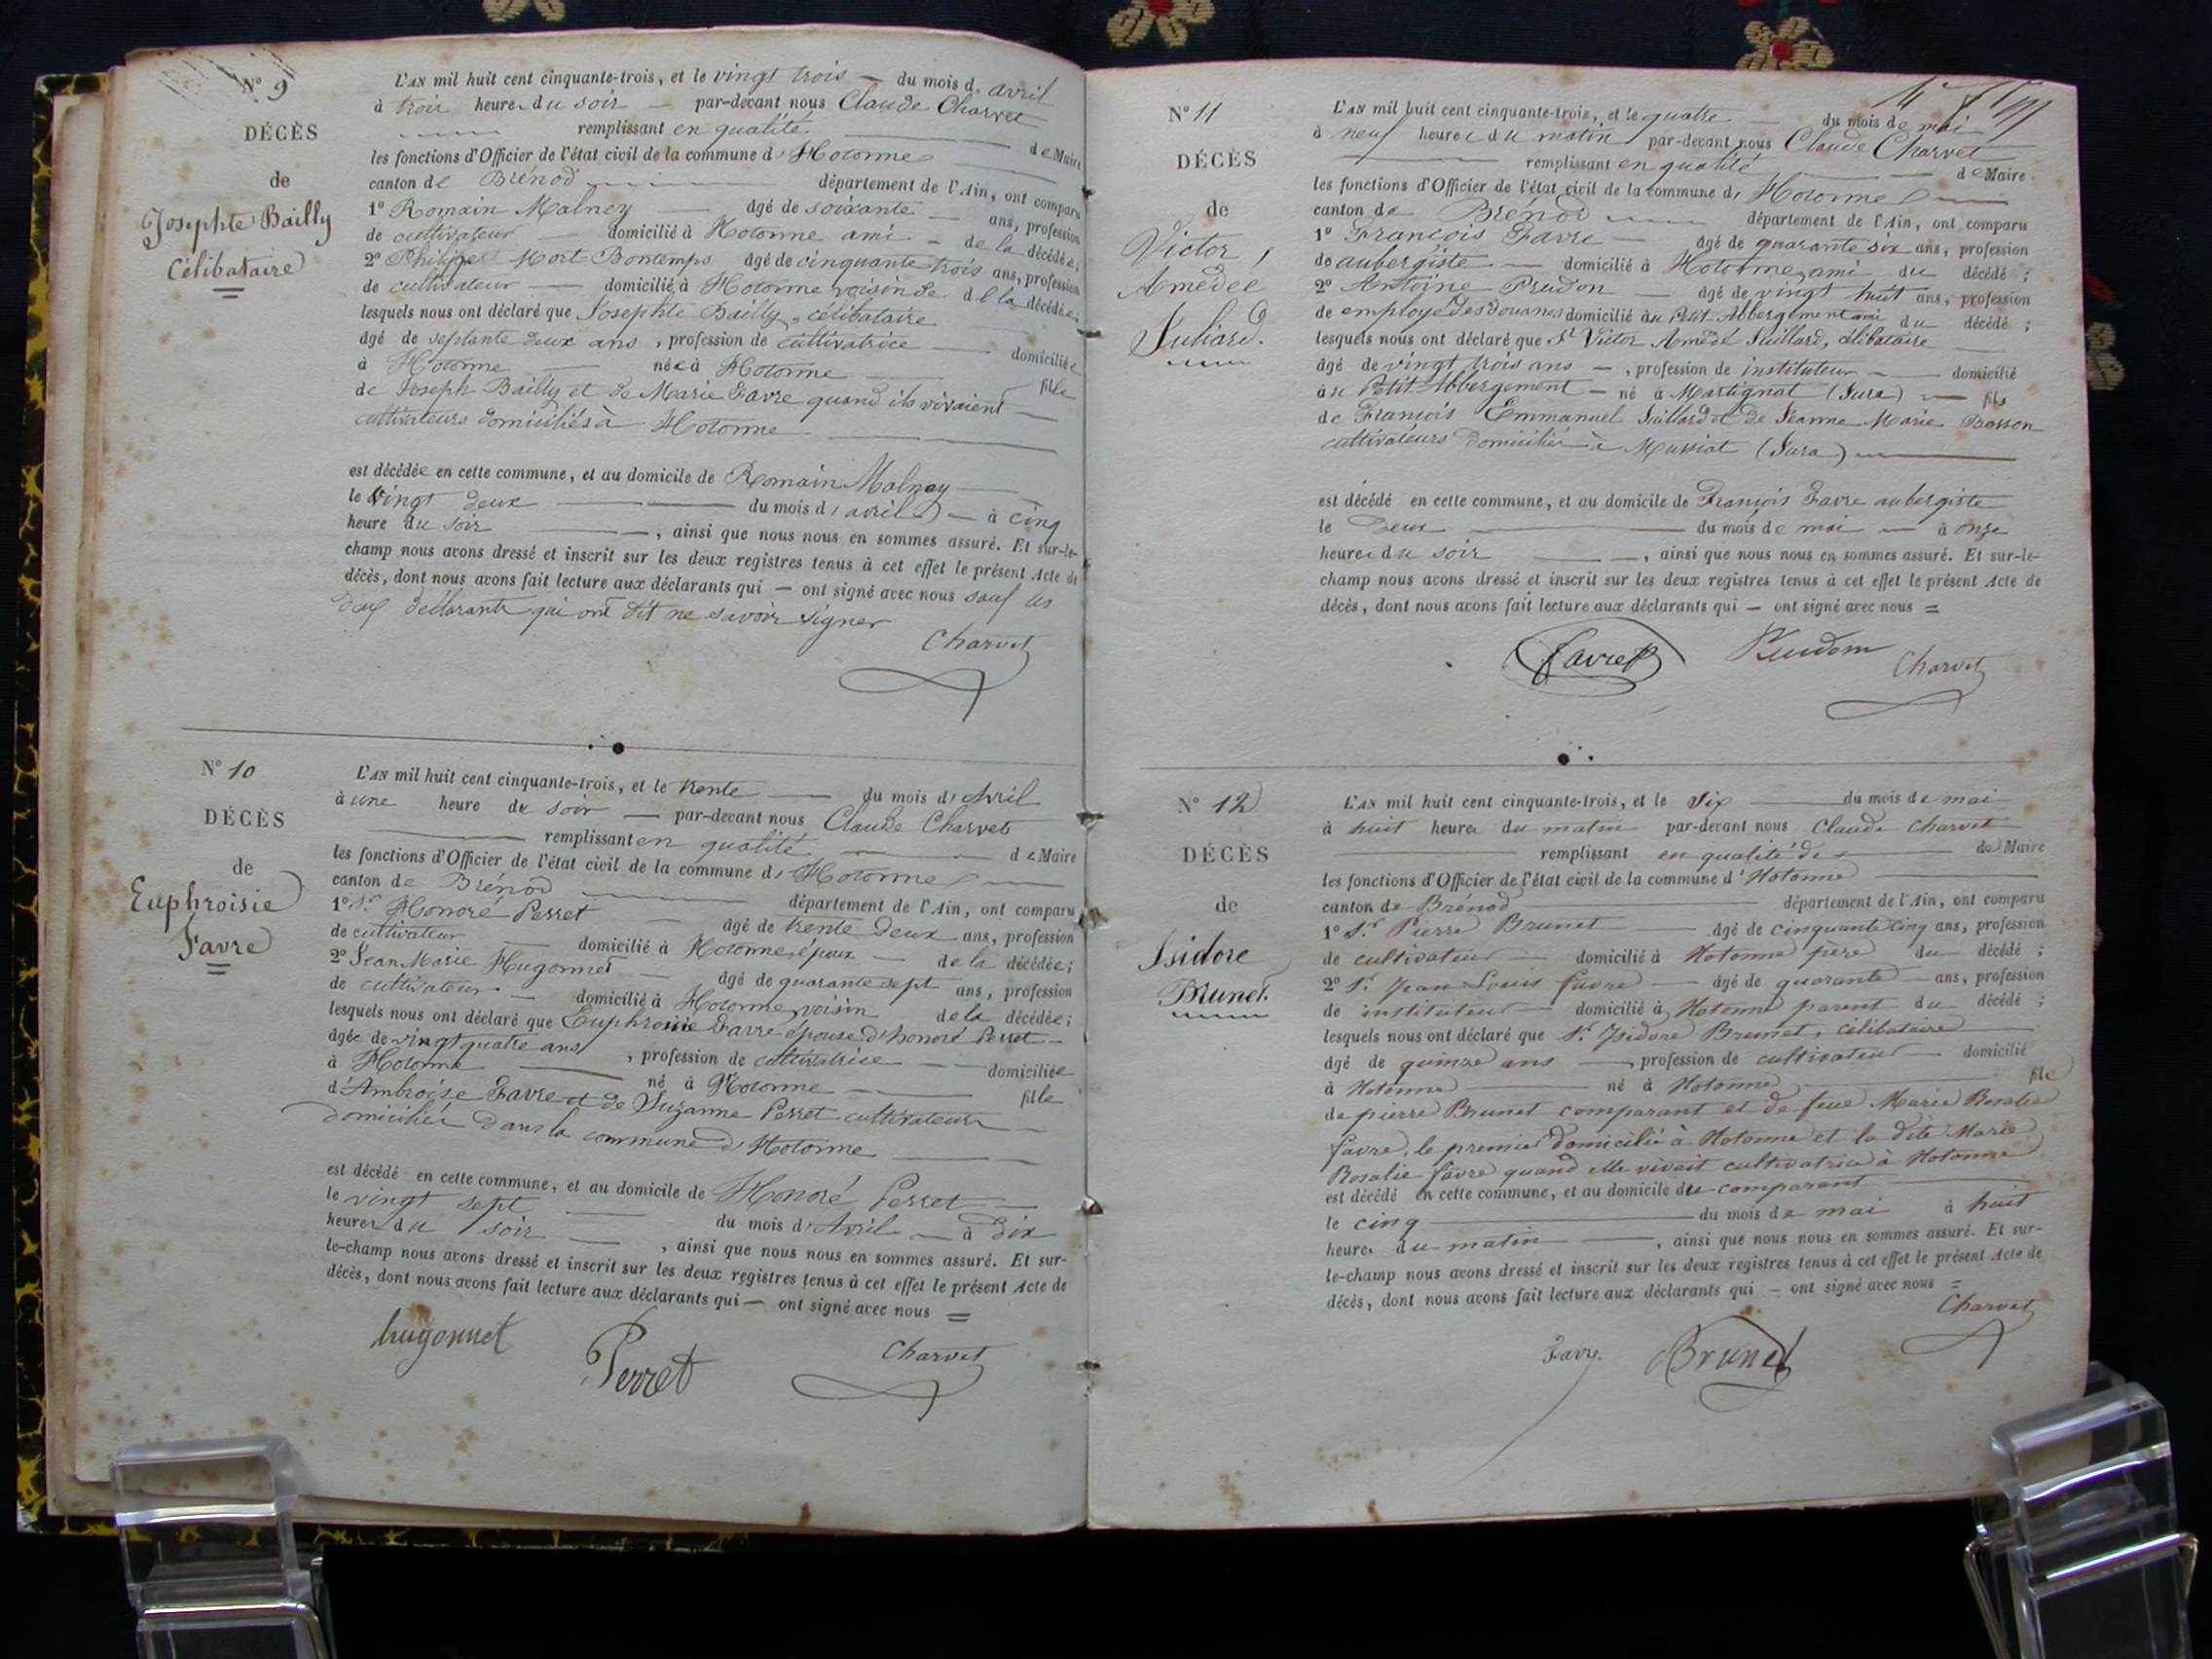 N° 9
DÉCÈS
de
Josephte Bailly
Célibataire
L'AN mil huit cent cinquante-trois, et le vingt trois — du mois d'avril
à trois heures du soir — par-devant nous Claude Charvet
remplissant en qualité — de Maire
les fonctions d'Officier de l'état civil de la commune d'Hotonne
canton de Brénod — département de l'Ain, ont comparu
1° Romain Malney — âgé de soixante — ans, profession
de cultivateur — domicilié à Hotonne ami — de la décédée;
2° Philippe Mort Bontemps âgé de cinquante trois ans, profession
de cultivateur — domicilié à Hotonne voisin de de la décédée;
lesquels nous ont déclaré que Josephte Bailly, célibataire
âgé de septante deux ans, profession de cultivatrice — domiciliée
à Hotonne — née à Hotonne — fille
de Joseph Bailly et de Marie Favre quand ils vivaient —
cultivateurs domiciliés à Hotonne —
est décédée en cette commune, et au domicile de Romain Malney —
le vingt deux — du mois d'avril — à cinq
heure du soir —, ainsi que nous nous en sommes assuré. Et sur-le-
champ nous avons dressé et inscrit sur les deux registres tenus à cet effet le présent Acte de
décès, dont nous avons fait lecture aux déclarants qui — ont signé avec nous sauf les
deux déclarants qui ont dit ne savoir signer
Charvet
N° 10
DÉCÈS
de
Euphroisie
Favre
L'AN mil huit cent cinquante-trois, et le trente — du mois d'Avril
à une heure du soir — par-devant nous Claude Charvet
— remplissant en qualité — de Maire
les fonctions d'Officier de l'état civil de la commune d'Hotonne —
canton de Brénod — département de l'Ain, ont comparu
1° Sr Honoré Perret — âgé de trente deux ans, profession
de cultivateur — domicilié à Hotonne époux — de la décédée;
2° Jean Marie Hugonnet — âgé de quarante sept ans, profession
de cultivateur — domicilié à Hotonne voisin de la décédée;
lesquels nous ont déclaré que Euphroisie Favre épouse d'honoré Perret —
âgée de vingt quatre ans, profession de cultivatrice — domiciliée
à Hotonne — né à Hotonne — fille
d'Ambroise Favre et de Suzanne Perret cultivateurs —
domiciliés dans la commune d'Hotonne —
est décédé en cette commune, et au domicile de Honoré Perret —
le vingt sept — du mois d'Avril — à dix
heures du soir —, ainsi que nous nous en sommes assuré. Et sur-
le-champ nous avons dressé et inscrit sur les deux registres tenus à cet effet le présent Acte de
décès, dont nous avons fait lecture aux déclarants qui — ont signé avec nous =
hugonnet Perret Charvet
N° 11
DÉCÈS
de
Victor,
Amédée
Juliard.
L'AN mil huit cent cinquante-trois, et le quatre — du mois de mai
à neuf heures du matin par-devant nous Claude Charvet
— remplissant en qualité — de Maire
les fonctions d'Officier de l'état civil de la commune d'Hotonne —
canton de Brénod — département de l'Ain, ont comparu
1° François Favre — âgé de quarante six ans, profession
de aubergiste — domicilié à Hotonne, ami du décédé;
2° Antoine Prudon — âgé de vingt huit ans, profession
de employé des douanes domicilié au Petit Abbergement ami du décédé;
lesquels nous ont déclaré que Sr Victor Amédé Juillard, célibataire —
âgé de vingt trois ans —, profession de instituteur — domicilié
à u Petit Abbergement — né à Martignat (Jura) — fils
de François Emmanuel Juillard et de Jeanne Marie Bosson
cultivateurs domiciliés à Mussiat (Jura) —
est décédé en cette commune, et au domicile de François Favre aubergiste
le deux — du mois de mai — à onze
heures du soir —, ainsi que nous nous en sommes assuré. Et sur-le-
champ nous avons dressé et inscrit sur les deux registres tenus à cet effet le présent Acte de
décès, dont nous avons fait lecture aux déclarants qui — ont signé avec nous =
Favre Prudon Charvet
N° 12
DÉCÈS
de
Isidore
Brunet.
L'AN mil huit cent cinquante-trois, et le Six — du mois de mai
à huit heures du matin par-devant nous Claude Charvet
— remplissant en qualité de — de Maire
les fonctions d'Officier de l'état civil de la commune d'Hotonne —
canton de Brénod — département de l'Ain, ont comparu
1° Sr Pierre Brunet — âgé de cinquante cinq ans, profession
de cultivateur — domicilié à Hotonne père du décédé;
2° Sr Jean Louis favre — âgé de quarante — ans, profession
de instituteur — domicilié à Hotonne parent du décédé;
lesquels nous ont déclaré que Sr Isidore Brunet, célibataire —
âgé de quinze ans — profession de cultivateur — domicilié
à Hotonne — né à Hotonne — fils
de pierre Brunet comparant et de feue Marie Rosalie
favre, le premier domicilié à Hotonne et la dite Marie
Rosalie favre quand elle vivait cultivatrice à Hotonne
est décédé en cette commune, et au domicile du comparant —
le cinq — du mois de mai à huit
heures du matin —, ainsi que nous nous en sommes assuré. Et sur-
le-champ nous avons dressé et inscrit sur les deux registres tenus à cet effet le présent Acte de
décès, dont nous avons fait lecture aux déclarants qui — ont signé avec nous =
Charvet
Favre Brunet